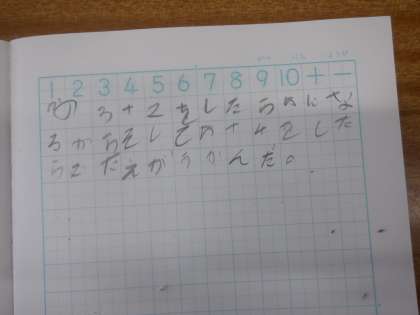 1 2 3 4 5 6 7 8 9 10 + −
3+2をしたらにな
るからそして+4をした
らこたえがうかんだ。